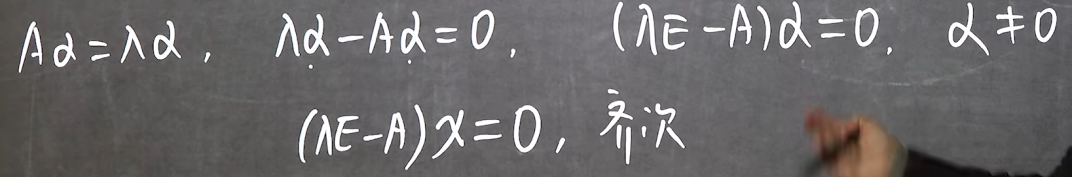 Aα=λα, λα-Aα=0, (λE-A)α=0, α≠0
(λE-A)x=0, 齐次